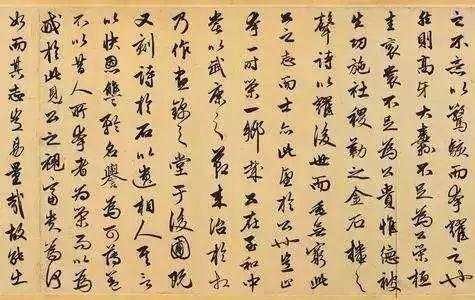 之不意以驚駭而夸耀之也
然則高牙大纛不足為公榮桓
圭袞裳不足為公貴惟德被
生功施社稷勒之金石播之
聲詩以耀後世而垂無窮此
公之志而士亦此望於公也豈止
夸一時榮一鄉哉公在至和中
嘗以武康之節來治於相
乃作晝錦之堂于後圃既
又刻詩於石以遺相人其言
以快恩讐矜名譽為可薄盖
不以昔人所夸者為榮而以為
戒於此見公之視富貴為何
如而其志豈易量哉故能出